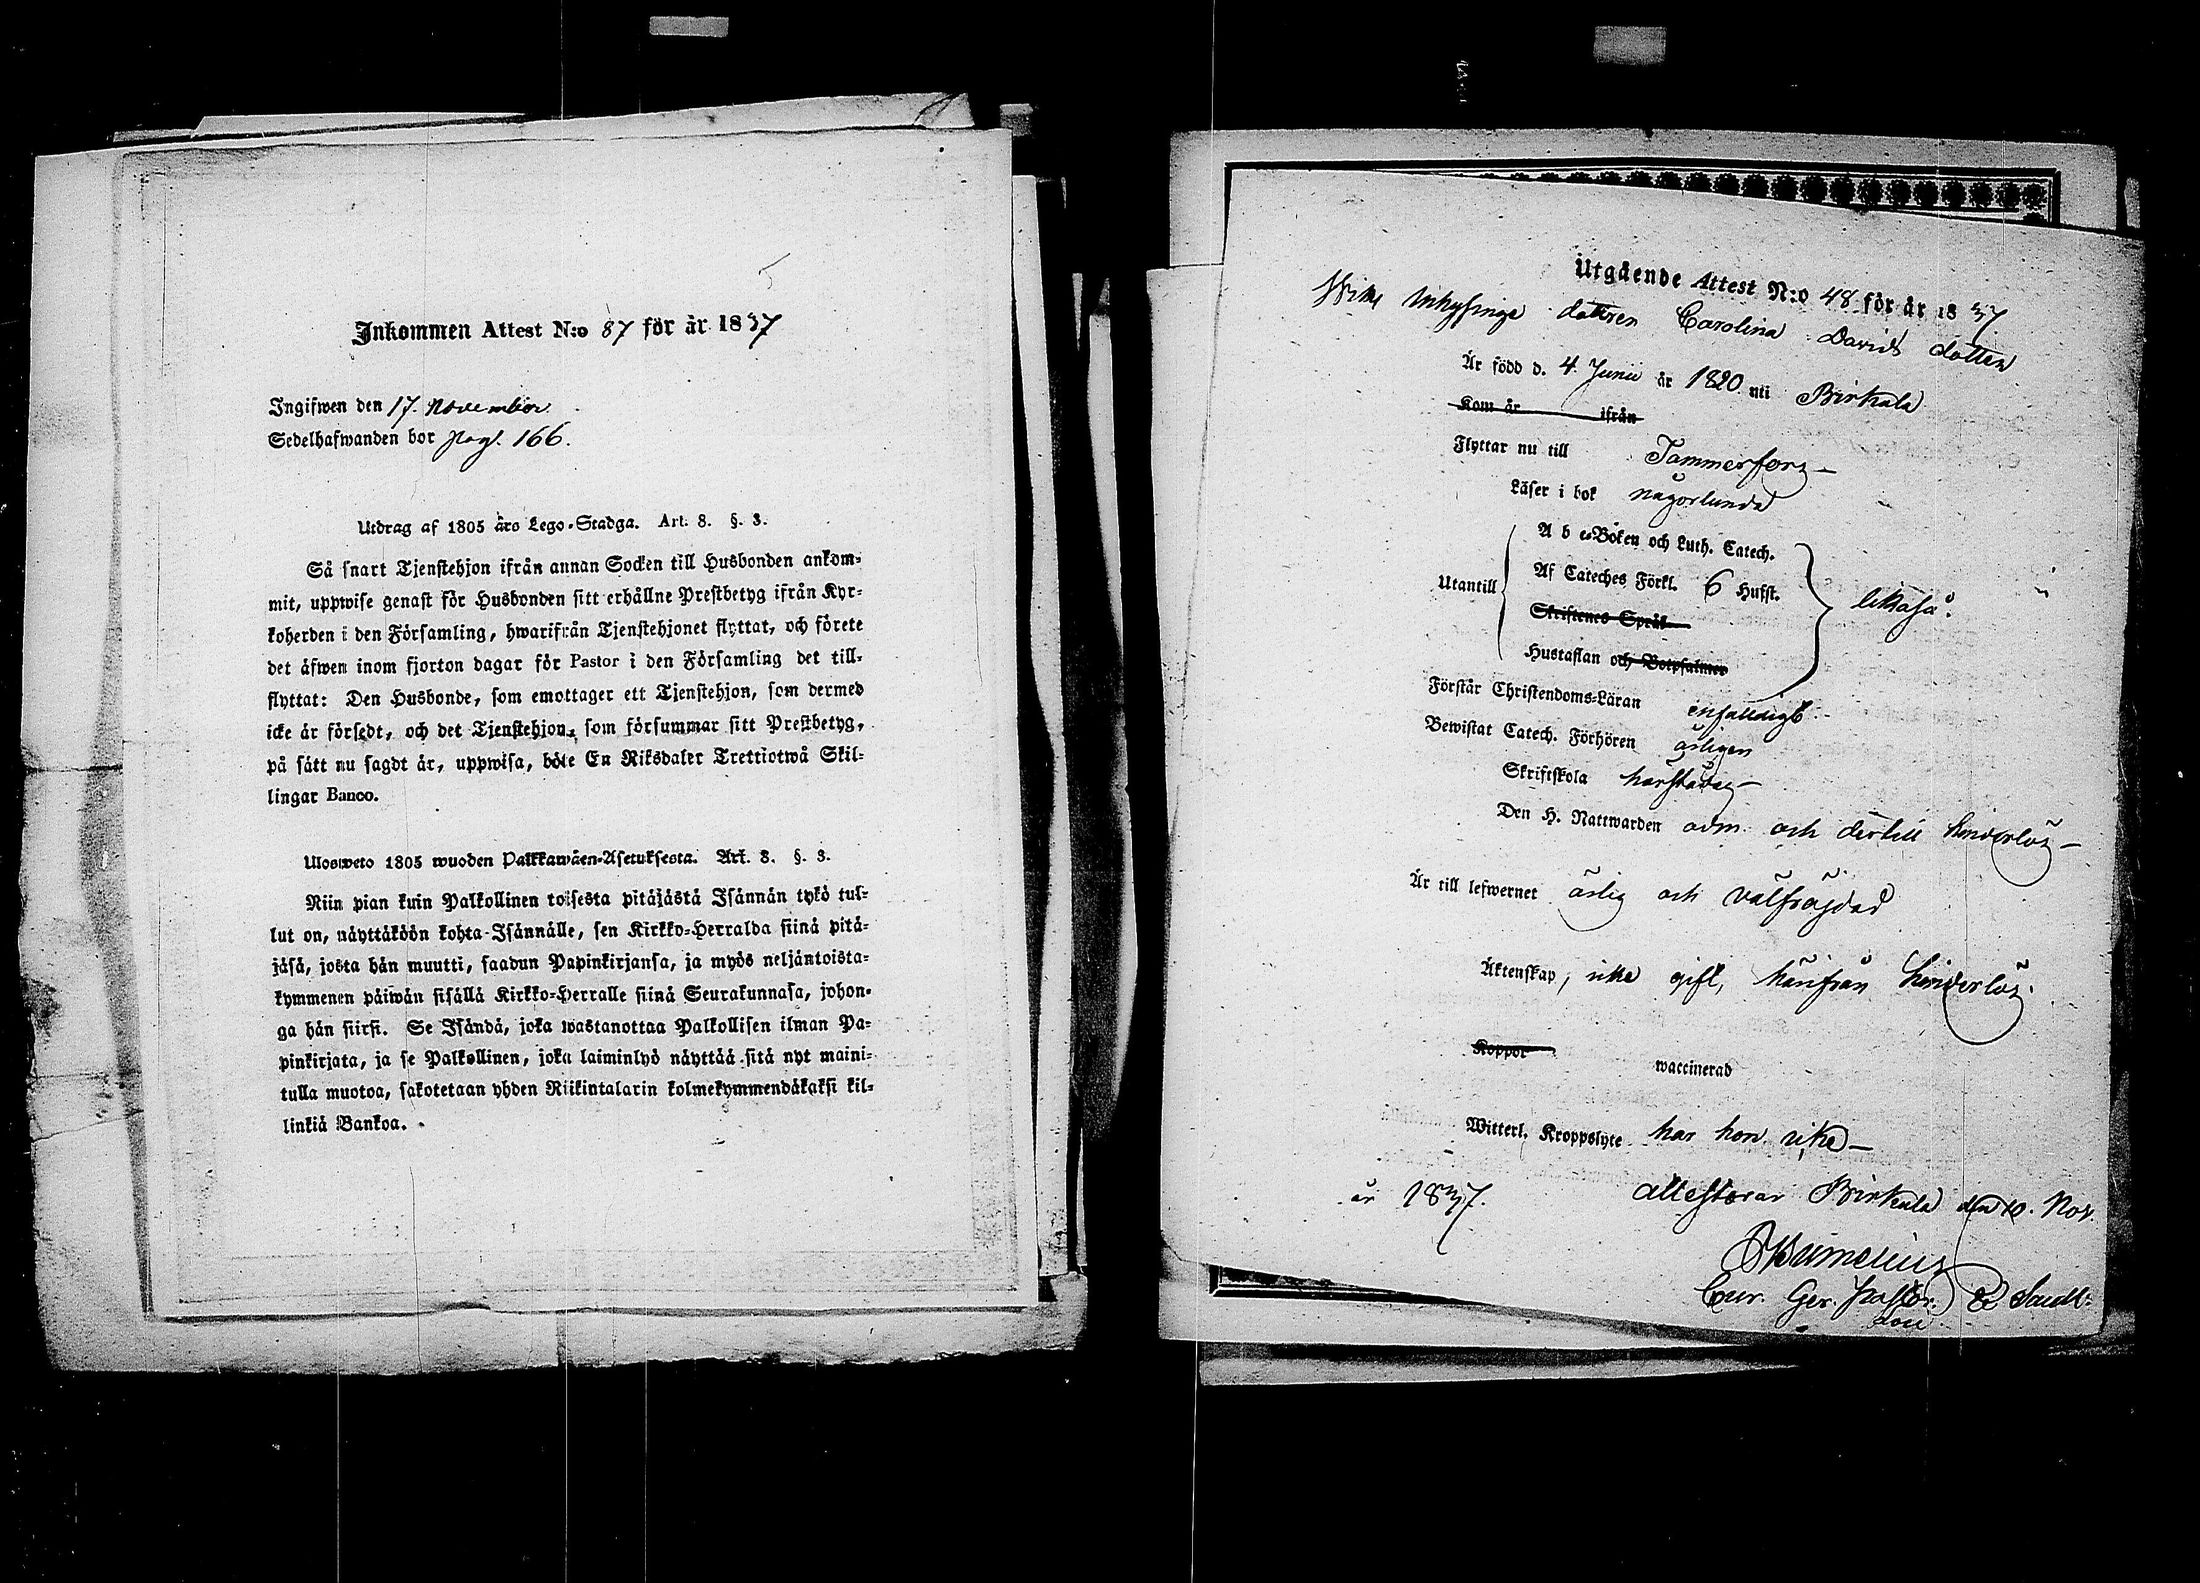 Inkommen Attest N:o 87 för år 1837
Ingifwen den 17. November.
Sedelhafwanden bor pag. 166.
Utdrag af 1805 års Lego-Stadga. Art. 8. §. 3.
Så snart Tjenstehjon ifrån annan Socken till Husbonden ankom-
mit, uppwise genast för Husbonden sitt erhållne Prestbetyg ifrån Kyr-
koherden i den Församling, hwarifrån Tjenstehjonet flyttat, och förete
det äfwen inom fjorton dagar för Pastor i den Församling det till-
flyttat: Den Husbonde, som emottager ett Tjenstehjon, som dermed
icke är försedt, och det Tjenstehjon, som försummar sitt Prestbetyg,
på sätt nu sagdt är, uppwisa, böte En Riksdaler Trettiotwå Skil-
lingar Banco.
Ulosweto 1805 wuoden Palkkawäen-Asetuksesta. Art. 8. §. 3.
Niin pian kuin Palkollinen toisesta pitäjästä Isännän tykö tul-
lut on, näyttäköön kohta Isännälle, sen Kirkko-Herralda siinä pitä-
jäsä, josta hän muutti, saadun Papinkirjansa, ja myös neljäntoista-
kymmenen päiwän sisällä Kirkko-Herralle siinä Seurakunnasa, johon-
ga hän siirsi. Se Isändä, joka wastanottaa Palkollisen ilman Pa-
pinkirjata, ja se Palkollinen, joka laiminlyö näyttää sitä nyt maini-
tulla muotoa, sakotetaan yhden Riikintalarin kolmekymmendäkaksi kil-
linkiä Bankoa.
Utgående Attest N:o 48 för år 1837.
Inhysinge dottren Carolina Davids dotter
Är född d. 4 Junii år 1820 uti Birkala
Kom år ifrån
Flyttar nu till Tammerfors
Läser i bok någorlunda
A b c-Boken och Luth. Catech.
Utantill Af Cateches Förkl. 6 Hufst. likaså.
Skriftenes Språk
Hustaflan och Botpsalmer
Förstår Christendoms-Läran enfaldigt.
Bewistat Catech. Förhören årligen
Skriftskola härstädes
Den H. Nattwarden adm. och dertill hinderlös
Är till lefwernet ärlig och välfräjdad
Äktenskap, icke gift, härifrån hinderlös.
Koppor waccinerad
Witterl. Kroppslyte har hon icke
år 1837. attesterar Birkala den 10. Nov.
Cur. Ger. Pastor.